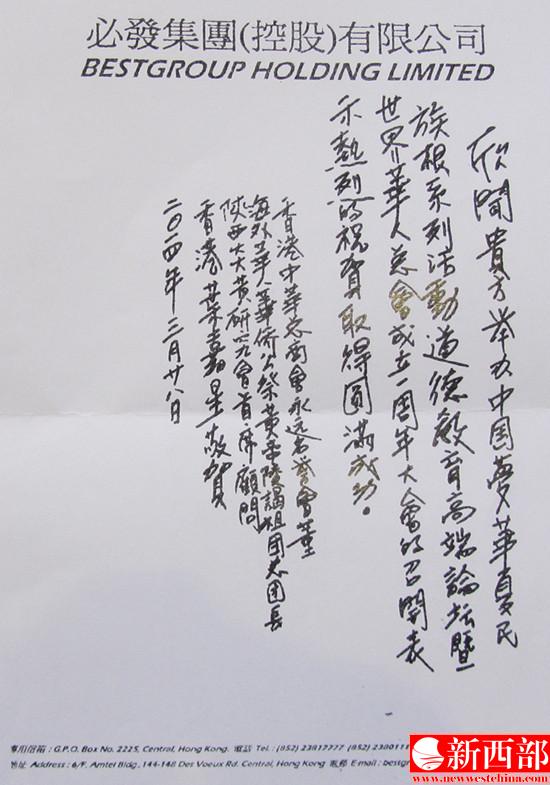 必發集團(控股)有限公司
BESTGROUP HOLDING LIMITED
欣聞貴方举办中国夢華夏民
族根系列活動道德教育高端論坛暨
世界華人总會成立一周年大會的召開表
示熱烈的祝賀取得圓滿成功。
香港中華总商會永远名誉會董
海外华人華侨公祭黄帝陵謁祖团总团長
陕西大黄研究會首席顧問
香港葉嘉星敬賀
二〇一四年三月廿八日
專用信箱：G.P.O. Box No. 2225, Central, Hong Kong. 電話 Tel. : (852) 23817777 (852) 2380111
地址 Address : 6/F. Amtel Bldg., 144-148 Des Voeux Rd. Central, Hong Kong 電郵 E-mail : bestgr
新西部
www.newwestchina.com